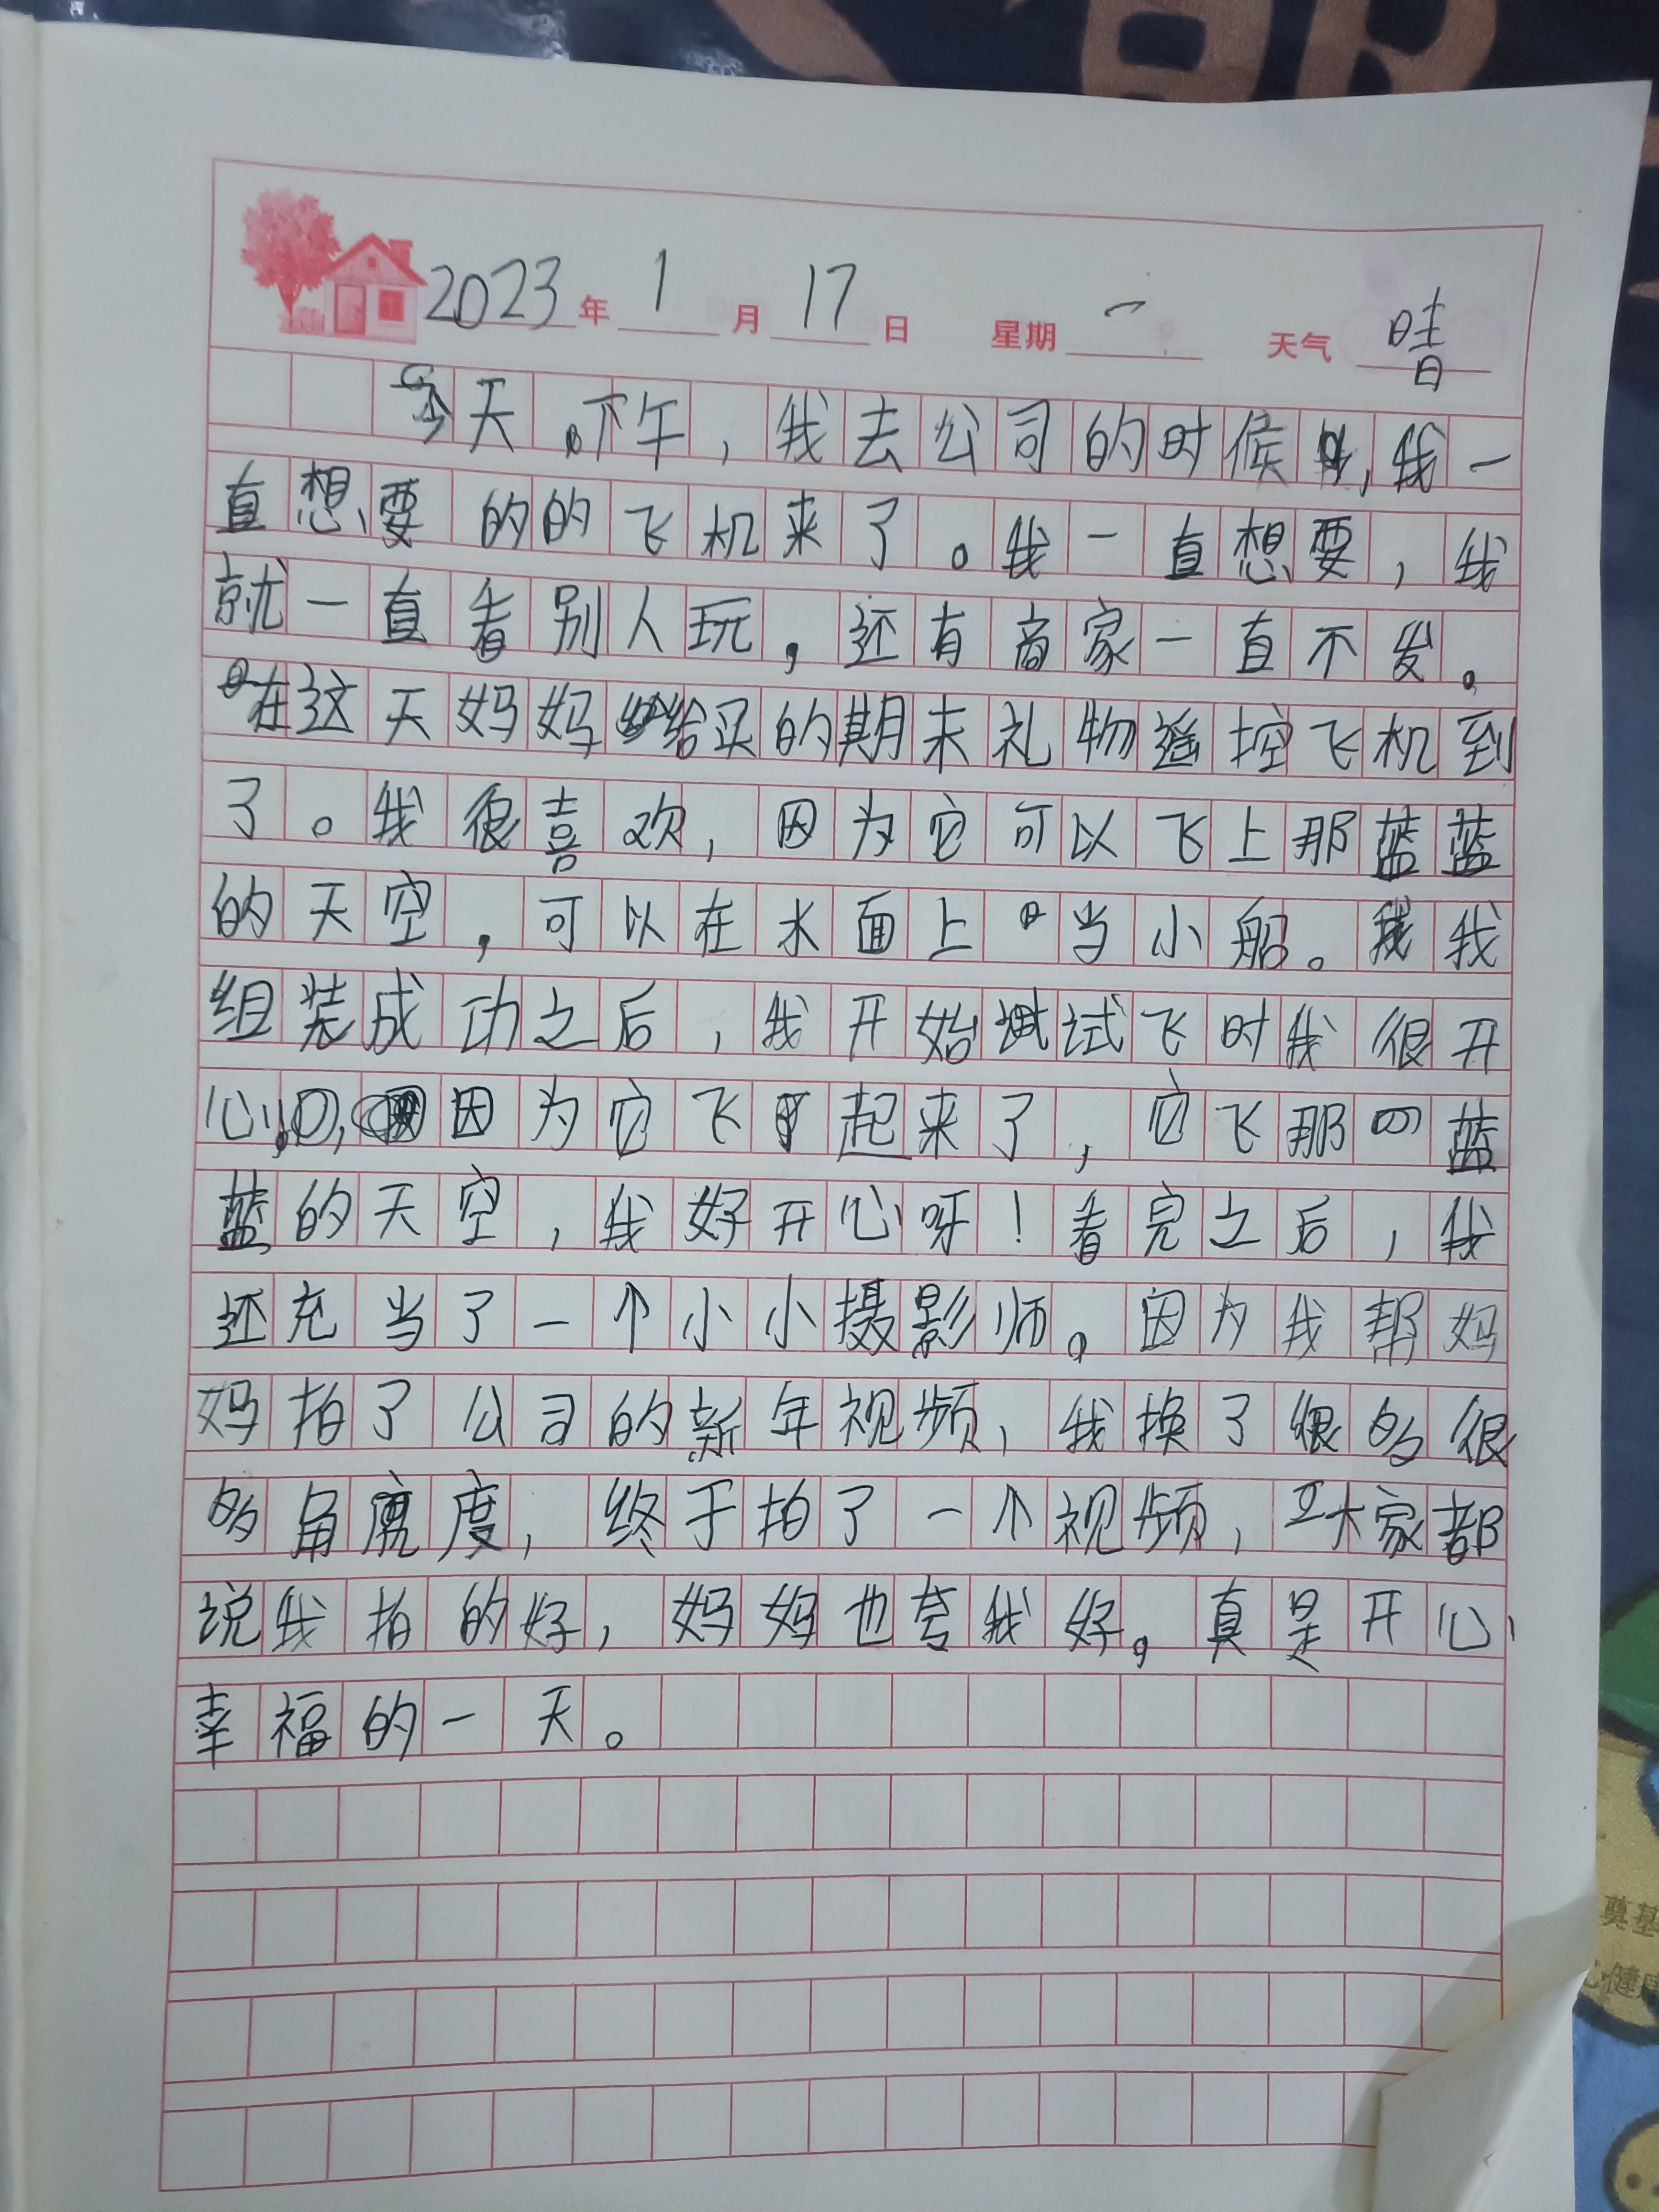 2023年 1月 17日 星期 一 天气 晴
今天下午，我去公司的时候，我一
直想要的的飞机来了。我一直想要，我
就一直看别人玩，还有商家一直不发。
在这天妈妈给买的期末礼物遥控飞机到
了。我很喜欢，因为它可以飞上那蓝蓝
的天空，可以在水面上当小船。我
组装成功之后，我开始试飞时我很开
心，因为它飞起来了，它飞那蓝
蓝的天空，我好开心呀！看完之后，我
还充当了一个小小摄影师。因为我帮妈
妈拍了公司的新年视频，我换了很多很
多角度，终于拍了一个视频，大家都
说我拍的好，妈妈也夸我好。真是开心
幸福的一天。